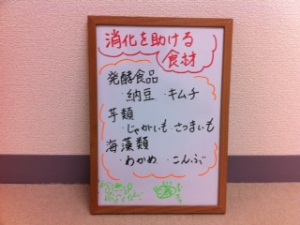 消化を助ける
食材
発酵食品
・納豆 ・キムチ
芋類
・じゃがいも・さつまいも
海藻類
・わかめ ・こんぶ